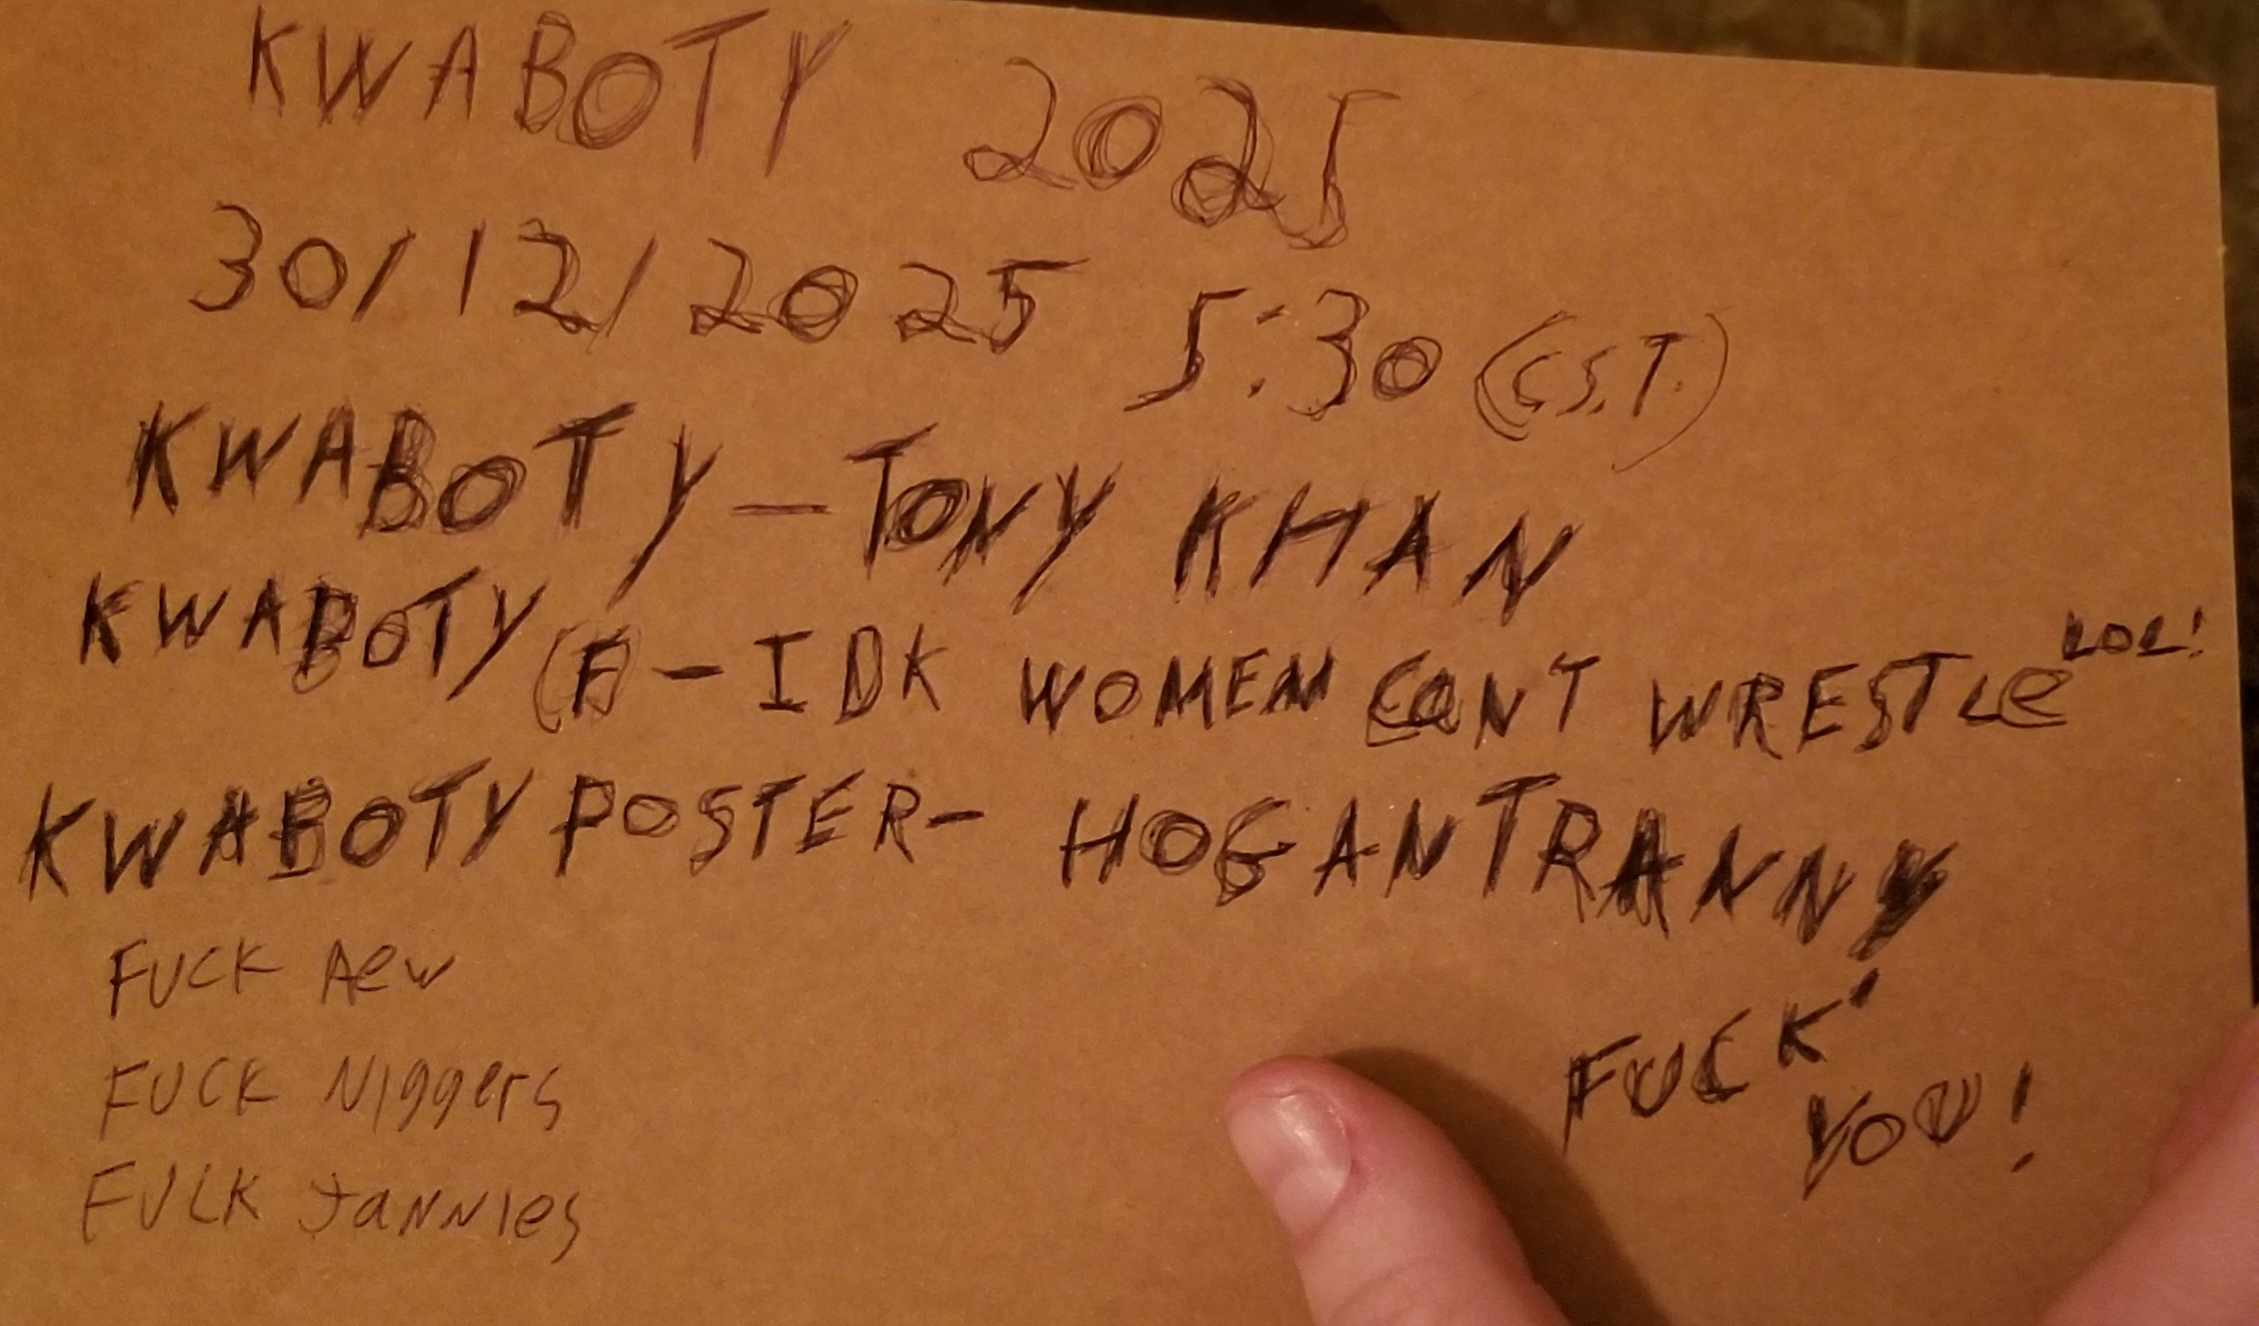 KWABOTY 2025
30/12/2025 5:30 (C.S.T.)
KWABOTY — TONY KHAN
KWABOTY (F) - IDK WOMEN CANT WRESTLe LOL!
KWABOTY POSTER - HOGANTRANNY
FUCK Aew
FUCK Niggers
FUCK Jannies
FUCK YOU!